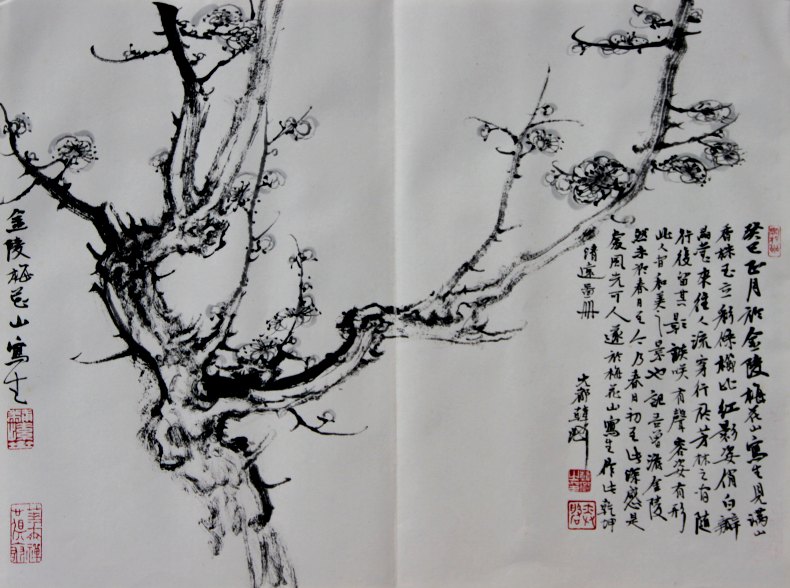 癸巳正月於金陵梅花山寫生見滿山
香株玉立彩條橫比紅影姿俏白瓣
爲雲來往人流穿行於芳林之間隨
行後留其影談笑有聲客姿有形
此人間和美之景也記吾曾游金陵
然未於春日至今乃春日初至此深感是
處風光可人遂於梅花山寫生作此乾坤
清遠畫冊
大都韓
金陵梅花山寫生